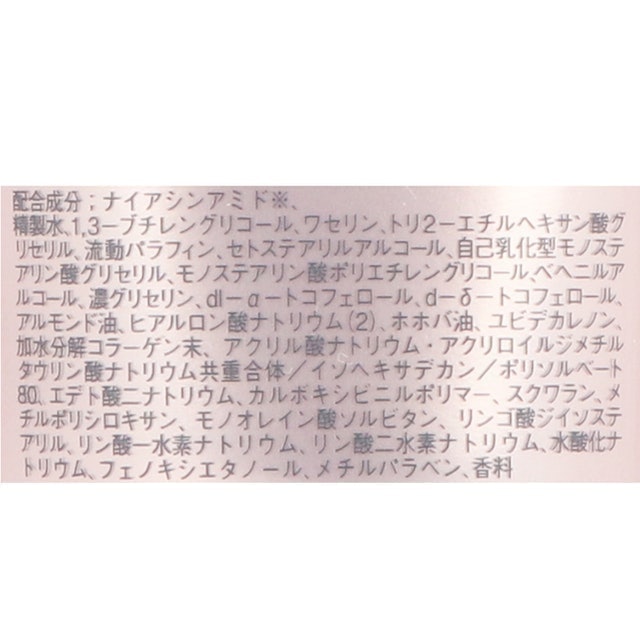 配合成分；ナイアシンアミド※、
精製水、1,3ーブチレングリコール、ワセリン、トリ2ーエチルヘキサン酸グ
リセリル、流動パラフィン、セトステアリルアルコール、自己乳化型モノステ
アリン酸グリセリル、モノステアリン酸ポリエチレングリコール、ベヘニルア
ルコール、濃グリセリン、dlーαートコフェロール、dーδートコフェロール、
アルモンド油、ヒアルロン酸ナトリウム(2)、ホホバ油、ユビデカレノン、
加水分解コラーゲン末、アクリル酸ナトリウム・アクリロイルジメチル
タウリン酸ナトリウム共重合体／イソヘキサデカン／ポリソルベート
80、エデト酸二ナトリウム、カルボキシビニルポリマー、スクワラン、メ
チルポリシロキサン、モノオレイン酸ソルビタン、リンゴ酸ジイソステ
アリル、リン酸一水素ナトリウム、リン酸二水素ナトリウム、水酸化ナ
トリウム、フェノキシエタノール、メチルパラベン、香料